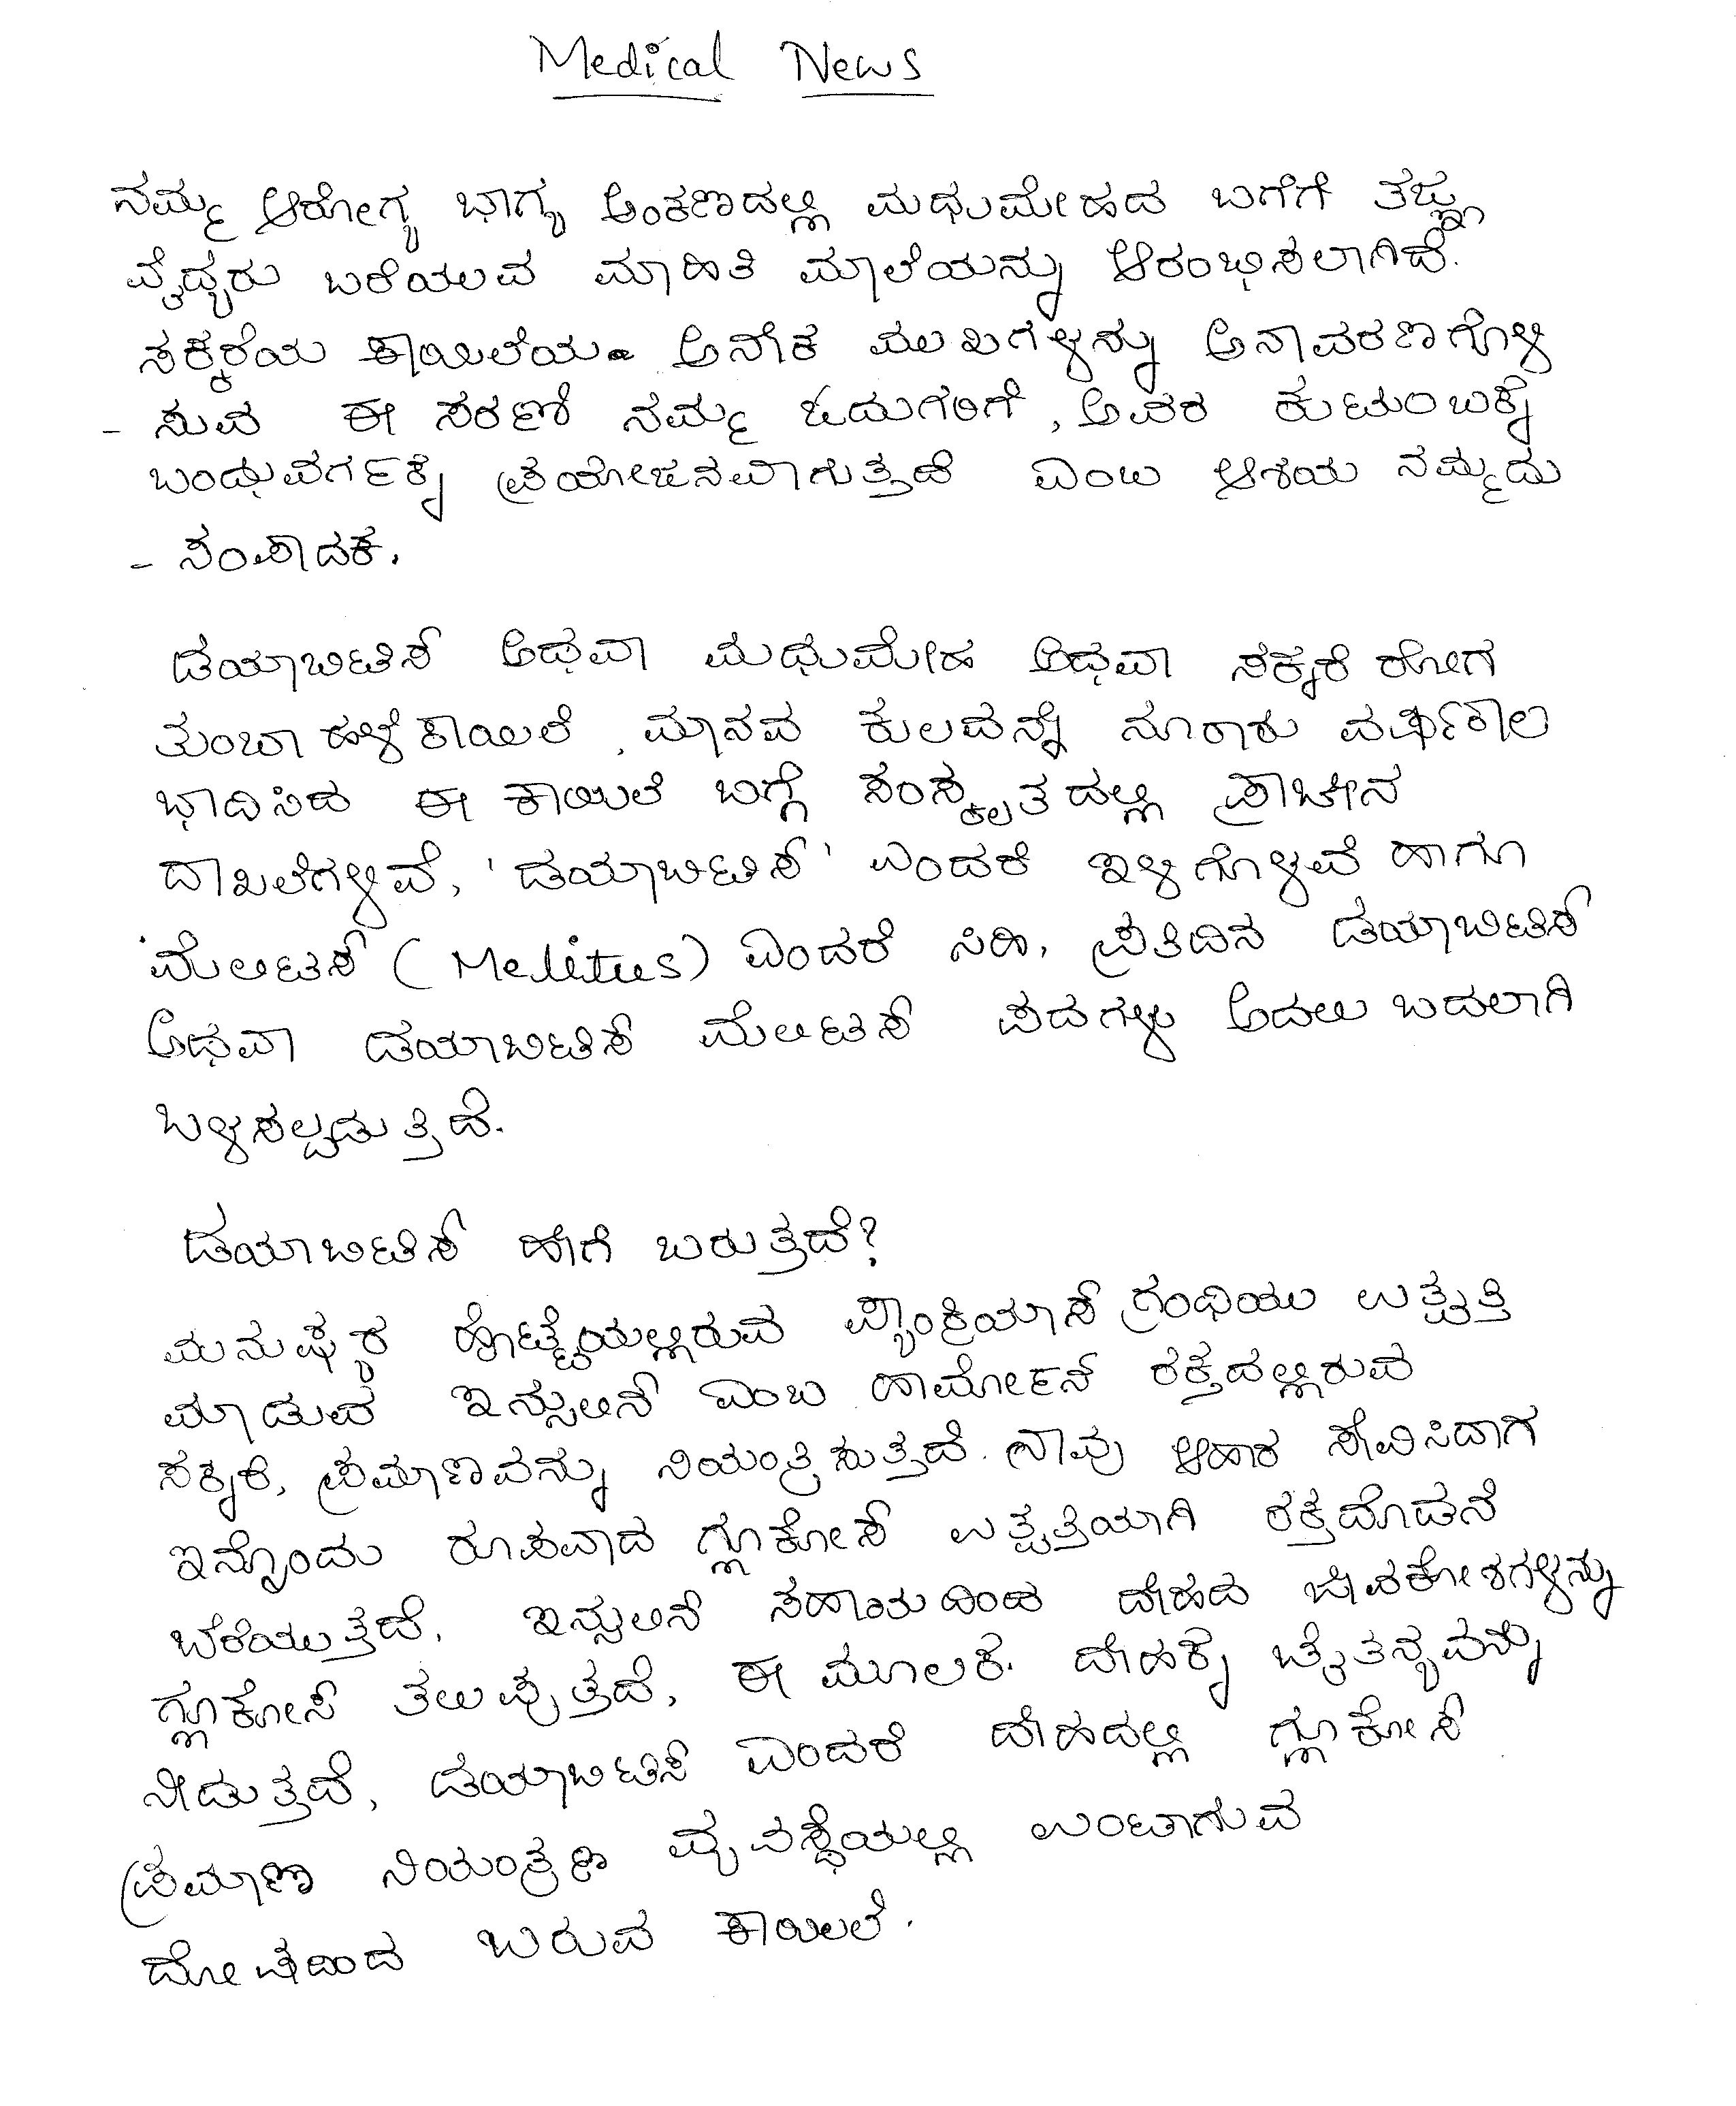 Medical News
ನಮ್ಮ ಆರೋಗ್ಯ ಭಾಗ್ಯ ಅಂಕಣದಲ್ಲಿ ಮಧುಮೇಹದ ಬಗೆಗೆ ತಜ್ಞ
ವೈದ್ಯರು ಬರೆಯುವ ಮಾಹಿತಿ ಮಾಲೆಯನ್ನು ಆರಂಭಿಸಲಾಗಿದೆ.
ಸಕ್ಕರೆಯ ಕಾಯಿಲೆಯ ಅನೇಕ ಮುಖಗಳನ್ನು ಅನಾವರಣಗೊಳಿ
- ಸುವ ಈ ಸರಣಿ ನಮ್ಮ ಓದುಗರಿಗೆ, ಅವರ ಕುಟುಂಬಕ್ಕೆ
ಬಂಧುವರ್ಗಕ್ಕೆ ಪ್ರಯೋಜನವಾಗುತ್ತದೆ ಎಂಬ ಆಶಯ ನಮ್ಮದು
- ಸಂಪಾದಕ.
ಡಯಾಬಿಟಿಸ್ ಅಥವಾ ಮಧುಮೇಹ ಅಥವಾ ಸಕ್ಕರೆ ರೋಗ
ತುಂಬಾ ಹಳೆ ಕಾಯಿಲೆ, ಮಾನವ ಕುಲವನ್ನೇ ನೂರಾರು ವರ್ಷಕಾಲ
ಭಾದಿಸಿದ ಈ ಕಾಯಿಲೆ ಬಗ್ಗೆ ಸಂಸ್ಕೃತದಲ್ಲಿ ಪ್ರಾಚೀನ
ದಾಖಲೆಗಳಿವೆ, 'ಡಯಾಬಿಟಿಸ್' ಎಂದರೆ ಇಳಿಗೊಳಿವೆ ಹಾಗೂ
'ಮೆಲಿಟಸ್ (Mellitus) ಎಂದರೆ ಸಿಹಿ, ಪ್ರತಿದಿನ ಡಯಾಬಿಟಿಸ್
ಅಥವಾ ಡಯಾಬಿಟಿಸ್ ಮೆಲಿಟಸ್ ಪದಗಳು ಅದಲು ಬದಲಾಗಿ
ಬಳಸಲ್ಪಡುತ್ತಿದೆ.
ಡಯಾಬಿಟಿಸ್ ಹೇಗೆ ಬರುತ್ತದೆ?
ಮನುಷ್ಯರ ಹೊಟ್ಟೆಯಲ್ಲಿರುವ ಪ್ಯಾಂಕ್ರಿಯಾಸ್ ಗ್ರಂಥಿಯು ಉತ್ಪತ್ತಿ
ಮಾಡುವ ಇನ್ಸುಲಿನ್ ಎಂಬ ಹಾರ್ಮೋನ್ ರಕ್ತದಲ್ಲಿರುವ
ಸಕ್ಕರೆ, ಪ್ರಮಾಣವನ್ನು ನಿಯಂತ್ರಿಸುತ್ತದೆ. ನಾವು ಆಹಾರ ಸೇವಿಸಿದಾಗ
ಇನ್ನೊಂದು ರೂಪವಾದ ಗ್ಲೂಕೋಸ್ ಉತ್ಪತ್ತಿಯಾಗಿ ರಕ್ತದೊಡನೆ
ಬೆರೆಯುತ್ತದೆ, ಇನ್ಸುಲಿನ್ ಸಹಾಯದಿಂದ ದೇಹದ ಜೀವಕೋಶಗಳನ್ನು
ಗ್ಲೂಕೋಸ್ ತಲುಪುತ್ತದೆ, ಈ ಮೂಲಕ. ದೇಹಕ್ಕೆ ಚೈತನ್ಯವನ್ನು
ನೀಡುತ್ತದೆ, ಡಯಾಬಿಟಿಸ್ ಎಂದರೆ ದೇಹದಲ್ಲಿ ಗ್ಲೂಕೋಸ್
ಪ್ರಮಾಣ ನಿಯಂತ್ರಣ ವ್ಯವಸ್ಥೆಯಲ್ಲಿ ಉಂಟಾಗುವ
ದೋಷದಿಂದ ಬರುವ ಕಾಯಿಲೆ.